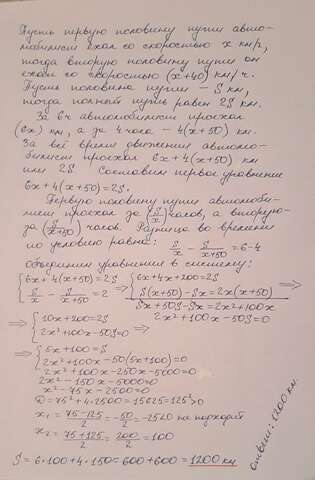 Пусть первую половину пути авто-
мобилист ехал со скоростью x км/ч,
тогда вторую половину пути он
ехал со скоростью (x+40) км/ч.
Пусть половина пути – S км,
тогда полный путь равен 2S км.
За 6ч автомобилист проехал
(6x) км, а за 4 часа – 4(x+50) км.
За всё время движения автомо-
билист проехал 6x+4(x+50) км
или 2S. Составим первое уравнение
6x+4(x+50)=2S.
Первую половину пути автомоби-
лист проехал за (S/x) часов, а вторую-
за (S/(x+50)) часов. Разница во времени
по условию равна: S/x - S/(x+50) =6-4
Объединим уравнения в систему:
{6x+4(x+50)=2S => {6x+4x+200=2S
{S/x - S/(x+50) =2 {S(x+50)-Sx=2x(x+50) =>
Sx+50S-Sx=2x²+100x
=> {10x+200=2S 2x²+100x-50S=0
{2x²+100x-50S=0 =>
=> {5x+100=S
{2x²+100x-50(5x+100)=0
2x²+100x-250x-5000=0
2x²-150x-5000=0
x²-75x-2500=0
D=75²+4·2500=15625=125²>0
x₁= (75-125)/2 = -50/2 =-25<0 не подходит
x₂= (75+125)/2 = 200/2 =100
S=6·100+4·150=600+600=1200 км
Ответ: 1200 км.